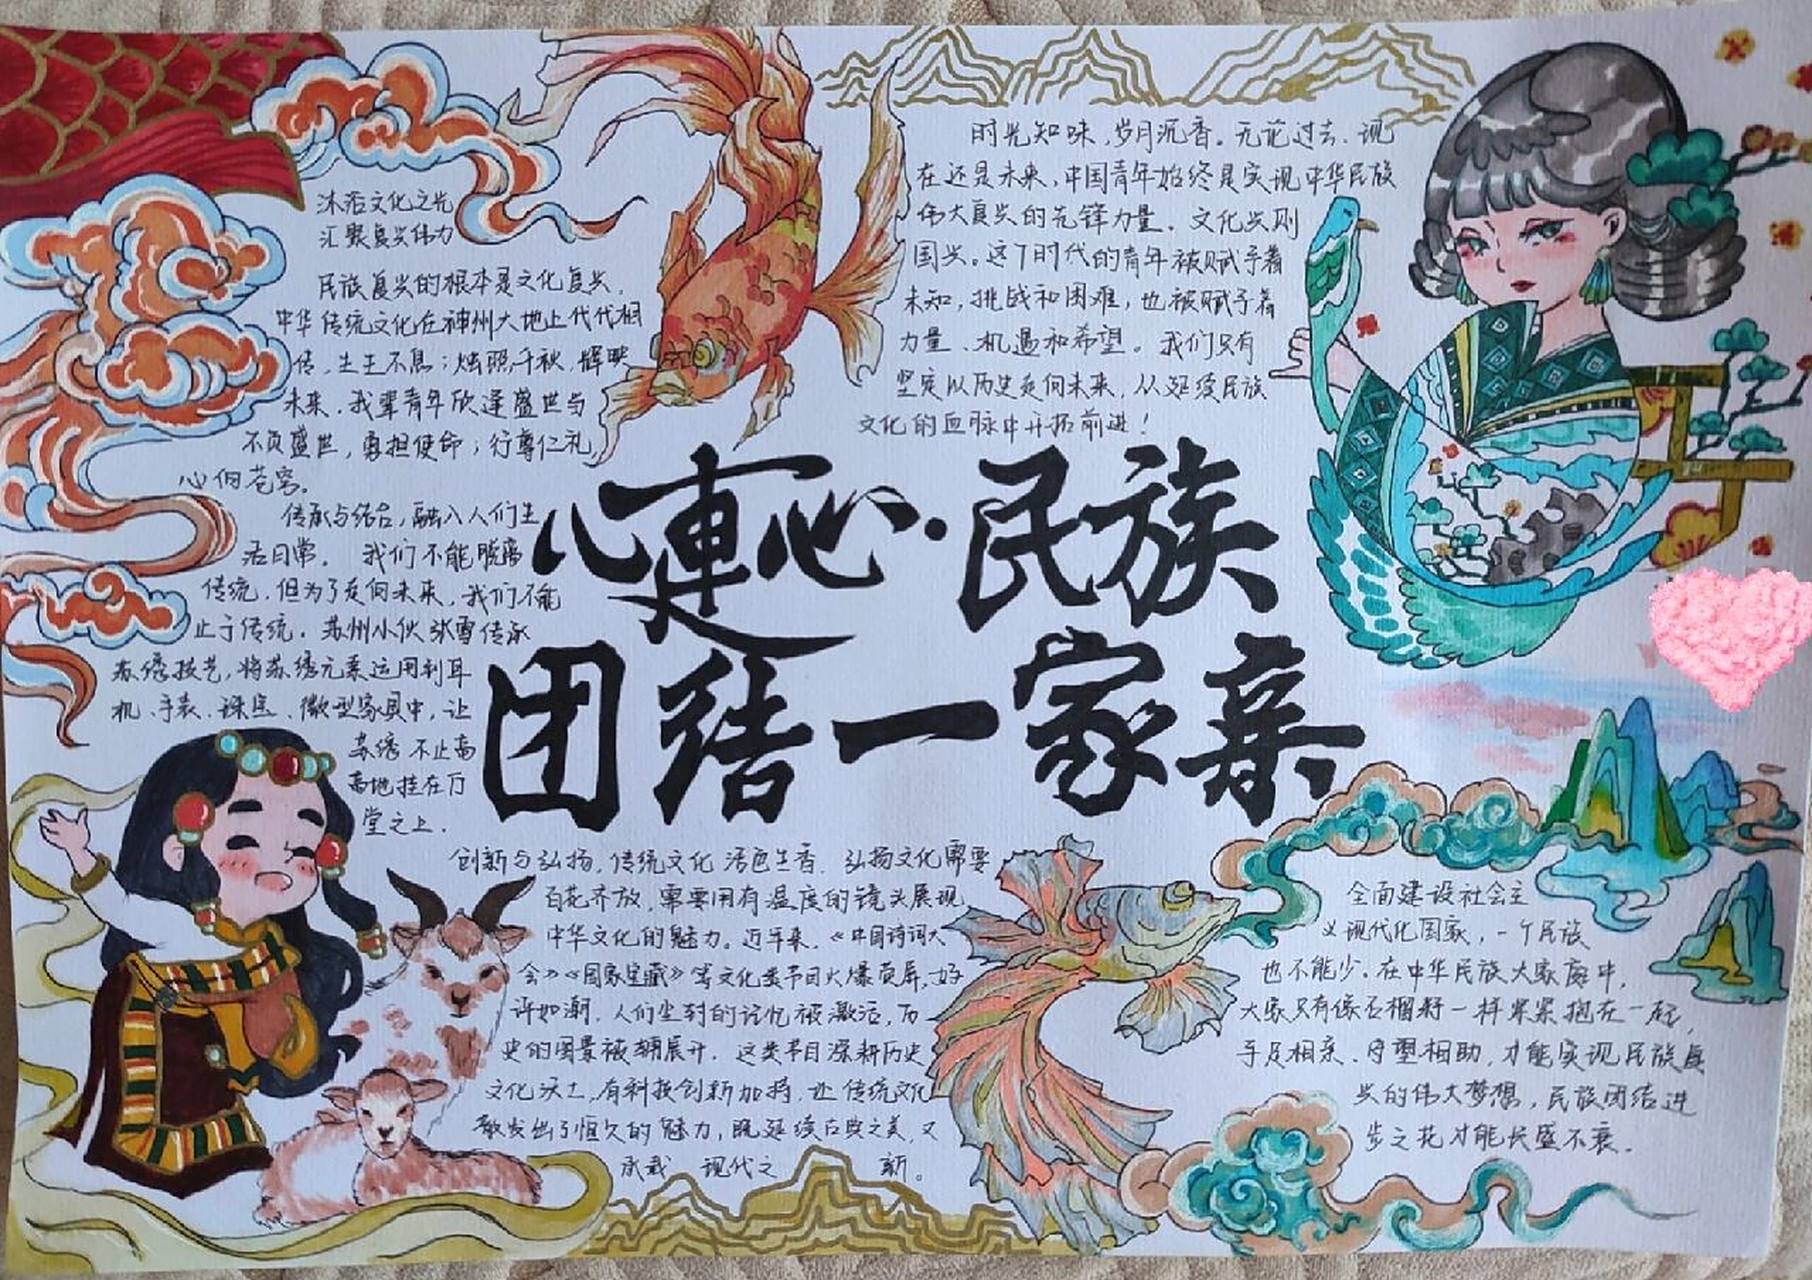 沐浴文化之光
汇聚复兴伟力
民族复兴的根本是文化复兴,
中华传统文化在神州大地上代代相
传,生生不息;烛照千秋,辉映
未来.我辈青年欣逢盛世与
不负盛世,勇担使命;行尊仁礼,
心向苍穹。
传承与结合,融入人们生
活日常. 我们不能脱离
传统,但为了走向未来,我们不能
止于传统.苏州小伙张雪传承
苏绣技艺,将苏绣元素运用到耳
机、手表、珠宝、微型家具中,让
苏绣不止高
高地挂在厅
堂之上.
时光知味,岁月沉香。无论过去、现
在还是未来,中国青年始终是实现中华民族
伟大复兴的先锋力量.文化兴则
国兴。这个时代的青年被赋予着
未知,挑战和困难,也被赋予着
力量、机遇和希望。我们只有
坚定从历史走向未来,从延续民族
文化的血脉中开拓前进!
心連心·民族
团结一家亲
创新与弘扬,传统文化活色生香. 弘扬文化需要
百花齐放,需要用有温度的镜头展现
中华文化的魅力.近年来,《中国诗词大
会》《国家宝藏》等文化类节目火爆荧屏,好
评如潮.人们尘封的记忆被激活,历
史的图景被铺展开. 这类节目深耕历史
文化沃土,有科技创新加持,让传统文化
散发出了恒久的魅力,既延续古典之美,又
承载 现代之 新。
全面建设社会主
义现代化国家,一个民族
也不能少.在中华民族大家庭中,
大家只有像石榴籽一样紧紧抱在一起,
手足相亲、守望相助,才能实现民族复
兴的伟大梦想,民族团结进
步之花才能长盛不衰.